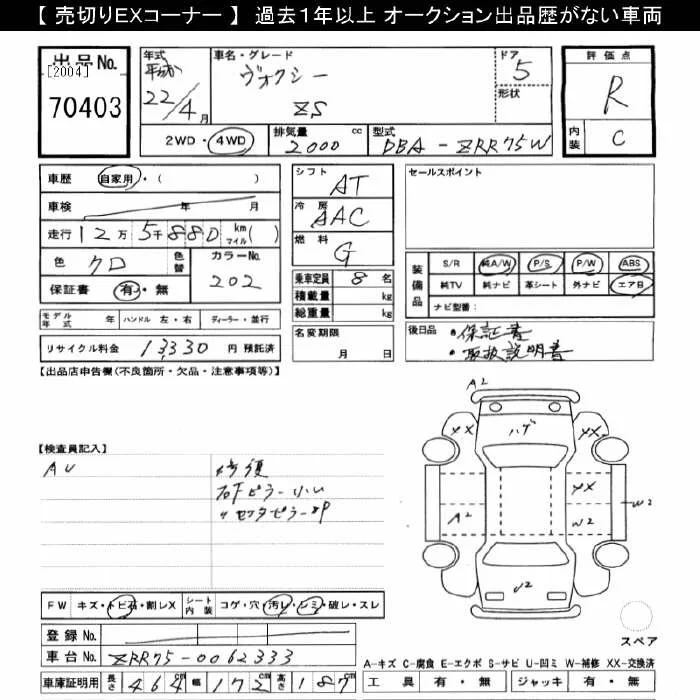 【 売切りEXコーナー 】 過去1年以上 オークション出品歴がない車両
出品No.
[2004]
70403
年式
平成
22/4月
車名・グレード
ヴォクシー
ZS
ドア
5
形状
評価点
R
内装
C
2WD・4WD
排気量
2000 cc
型式
DBA-ZRR75W
車歴 自家用・( )
車検 年 月
走行 12万5千880 kmマイル( )
色 クロ 色替
カラーNo.
202
保証書 有・無
シフト
AT
冷房
AAC
燃料
G
乗車定員 8名
積載量 kg
総重量 kg
名変期限
月 日
セールスポイント
装備品
S/R 純A/W P/S P/W ABS
純TV 純ナビ 革シート 外ナビ エアB
ナビ型番:
モデル年式 年 ハンドル 左・右 ディーラー・並行
リサイクル料金 13330 円 預託済
後日品
・保証書
・取扱説明書
【出品店申告欄(不良箇所・欠品・注意事項等)】
【検査員記入】
AU
修復
右Fピラー小い
〃センタピラーXP
A2
XX ハゲ XX
XX
W2
A2 W2
U2
スペア
FW キズ・トビ石・割レX シート内装 コゲ・穴・汚レ・シミ・破レ・スレ
登録 No.
車台 No. ZRR75-0062333
車庫証明用 長さ 464cm 幅 172cm 高さ 187cm
A-キズ C-腐食 E-エクボ S-サビ U-凹ミ W-補修 XX-交換済
工具 有・無 ジャッキ 有・無